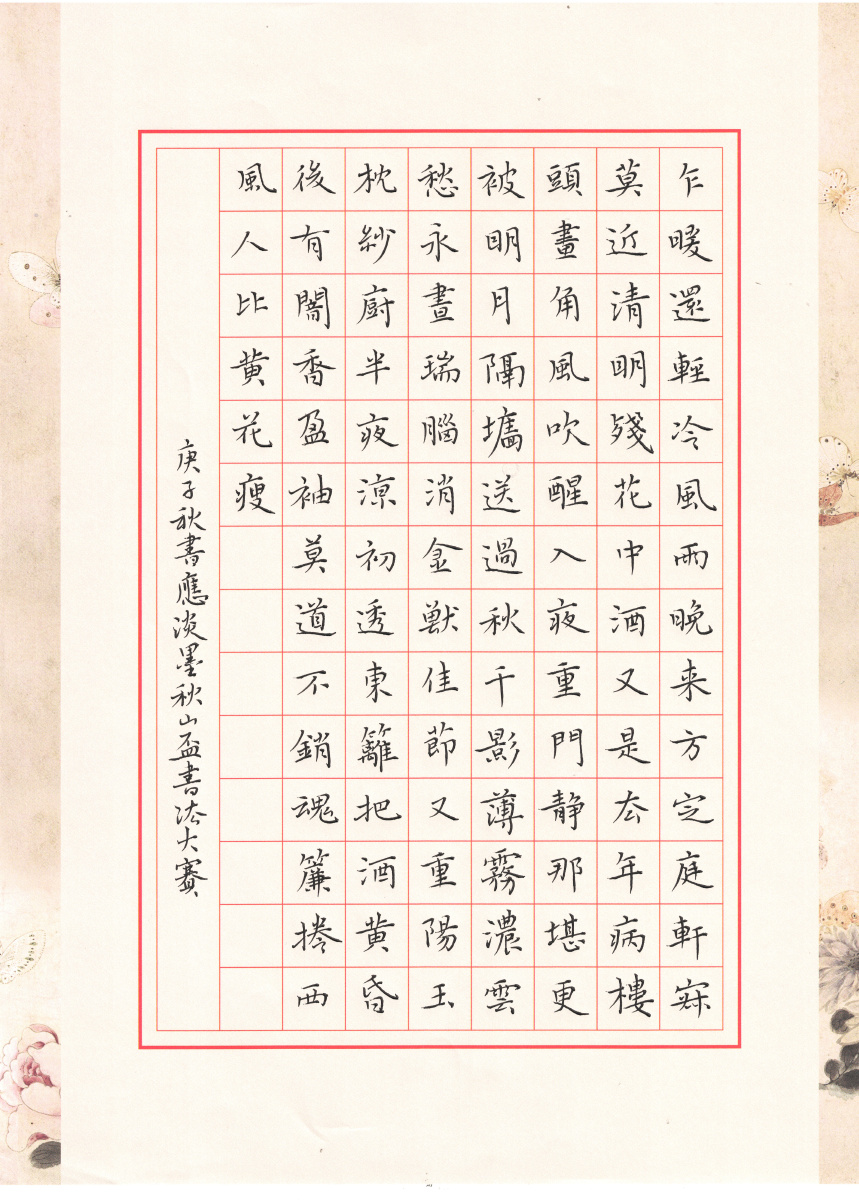 乍暖還輕冷風雨晚来方定庭軒寂
莫近清明殘花中酒又是去年病樓
頭畫角風吹醒入夜重門静那堪更
被明月隔墻送過秋千影薄霧濃雲
愁永晝瑞腦消金獸佳節又重陽玉
枕紗廚半夜涼初透東籬把酒黄昏
後有闇香盈袖莫道不銷魂簾捲西
風人比黄花瘦
庚子秋書應淡墨秋山盃書法大賽